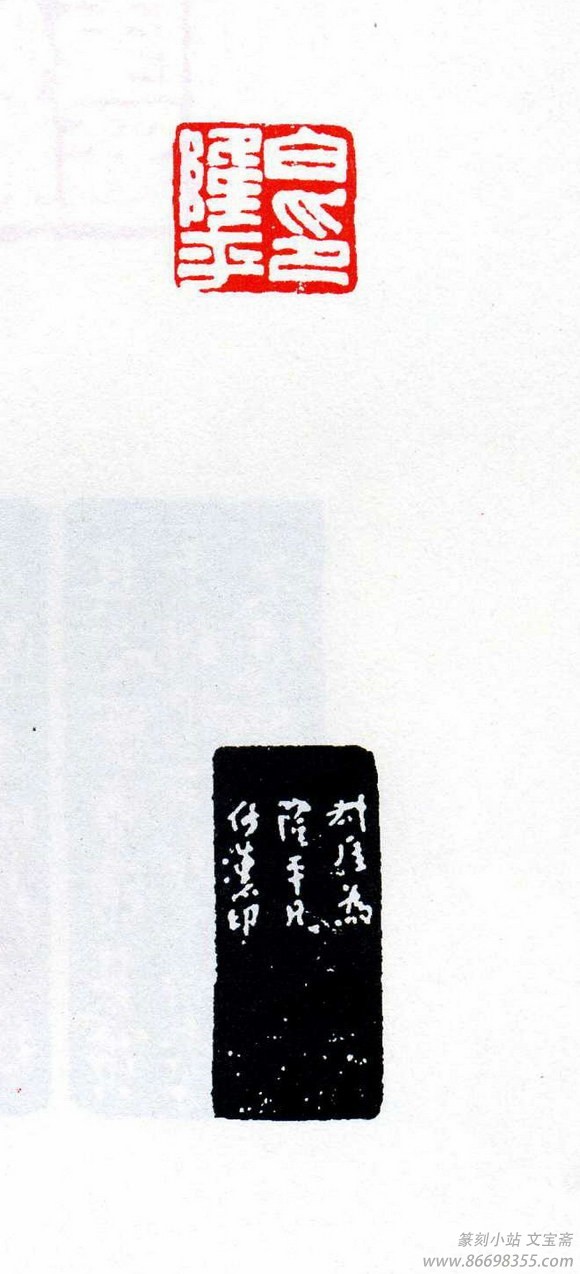 白印
隆平
為
隆平兄
仿漢印
篆刻小站 文宝斋
www.86698355.com